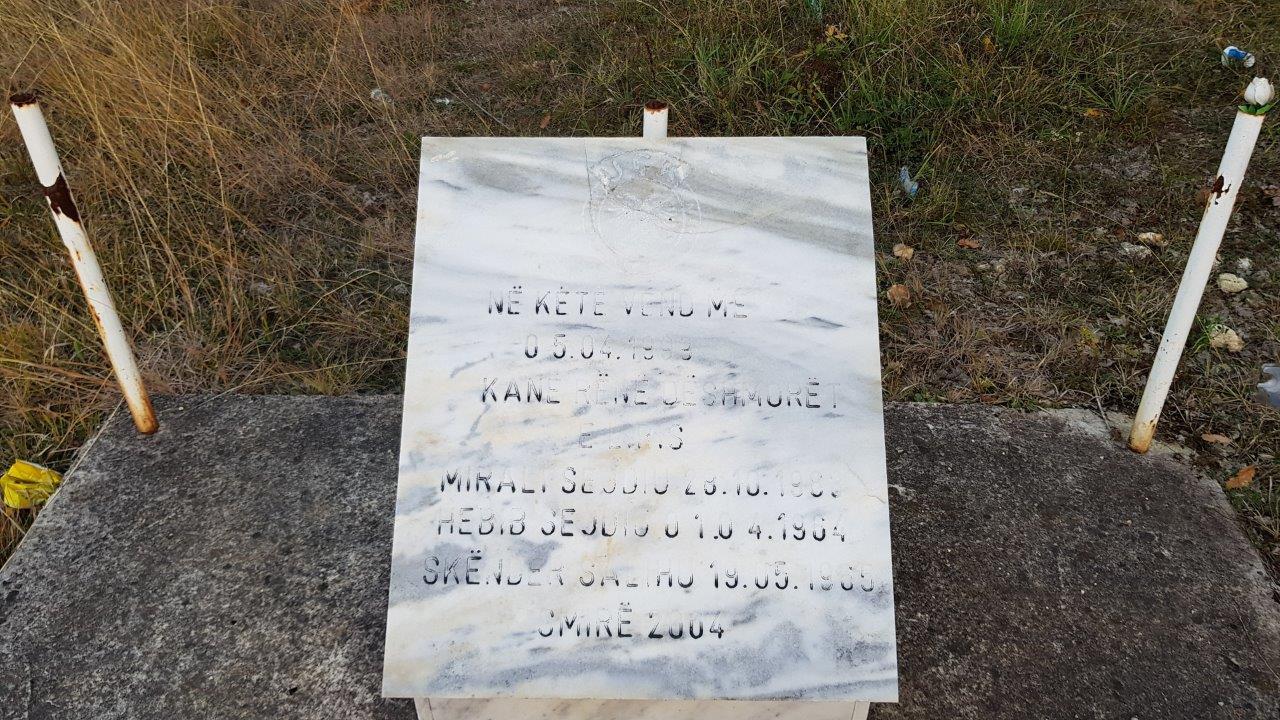 NË KËTE VEND ME
05.04.1998
KANE RËNË DËSHMORËT
E
MIRALI SEJDIU
HEBIB SEJDIU 01.04.1964
SKËNDER SALIHU 19.05.1965
SMIRË 2004